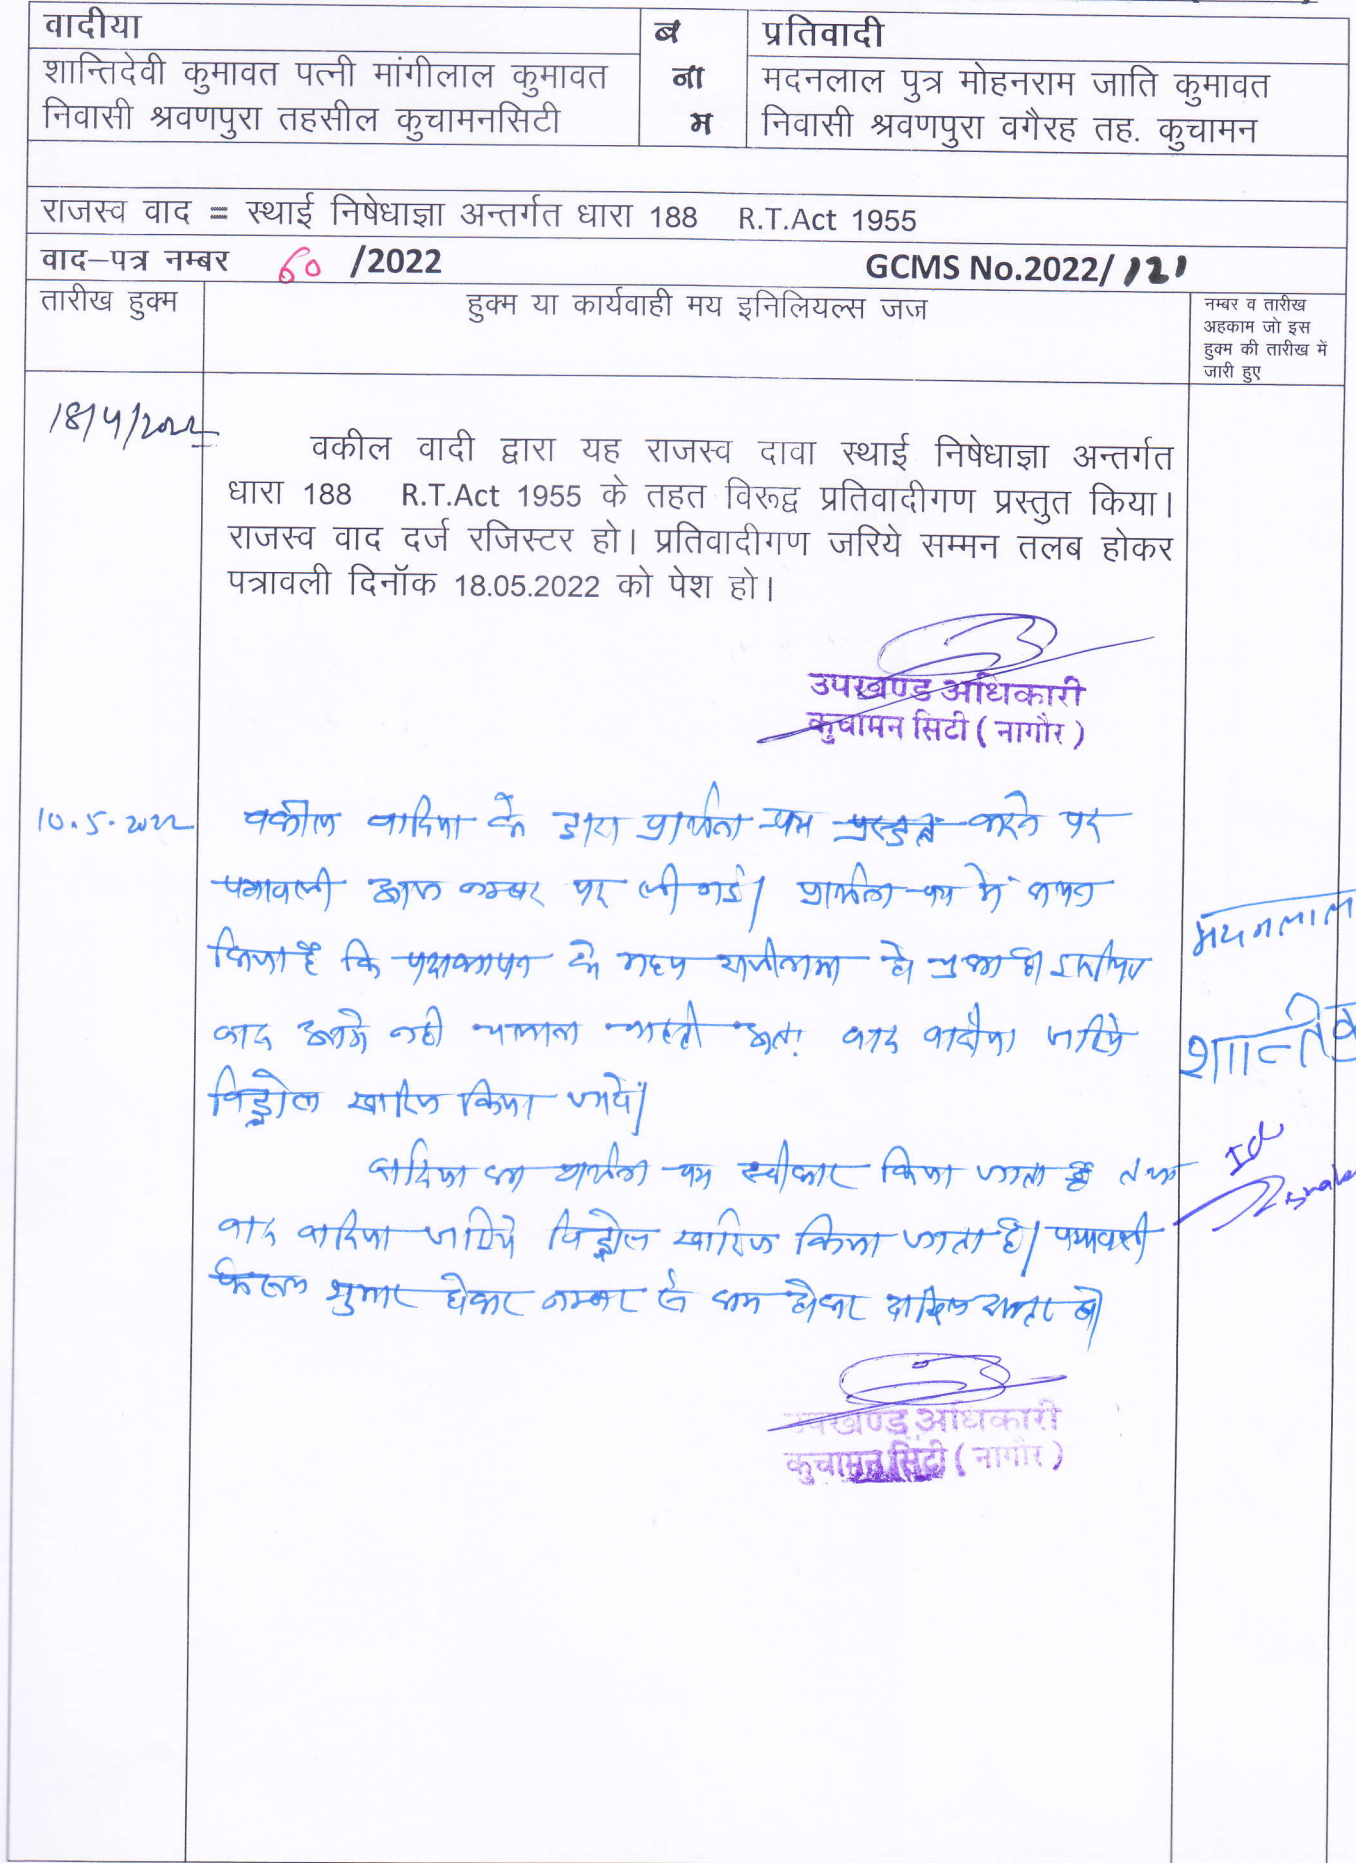 वादीया
ब
प्रतिवादी
शान्तिदेवी कुमावत पत्नी मांगीलाल कुमावत
ना
मदनलाल पुत्र मोहनराम जाति कुमावत
निवासी श्रवणपुरा तहसील कुचामनसिटी
म
निवासी श्रवणपुरा वगैरह तह. कुचामन
राजस्व वाद = स्थाई निषेधाज्ञा अन्तर्गत धारा 188 R.T.Act 1955
वाद–पत्र नम्बर 60 /2022 GCMS No.2022/121
तारीख हुक्म
हुक्म या कार्यवाही मय इनिलियल्स जज
नम्बर व तारीख
अहकाम जो इस
हुक्म की तारीख में
जारी हुए
18/4/2022
वकील वादी द्वारा यह राजस्व दावा स्थाई निषेधाज्ञा अन्तर्गत
धारा 188 R.T.Act 1955 के तहत विरूद्व प्रतिवादीगण प्रस्तुत किया।
राजस्व वाद दर्ज रजिस्टर हो। प्रतिवादीगण जरिये सम्मन तलब होकर
पत्रावली दिनॉक 18.05.2022 को पेश हो।
उपखण्ड अधिकारी
कुचामन सिटी ( नागौर )
10.5.2022
वकील वादिया के द्वारा प्रार्थना पत्र प्रस्तुत करने पर
पत्रावली आज नम्बर पर ली गई। प्रार्थना पत्र में कथन
किया है कि पक्षकारान के मध्य राजीनामा हो चुका है इसलिए
वाद आगे नही चलाना चाहते अतः वाद वादीया जरिये
विड्रोल खारिज किया जावे।
वादिया का प्रार्थना पत्र स्वीकार किया जाता है तथा
वाद वादिया जरिये विड्रोल खारिज किया जाता है। पत्रावली
फैसल शुमार होकर नम्बर से कम होकर दाखिल दफ्तर हो
मदनलाल
शान्ति
उपखण्ड अधिकारी
कुचामन सिटी ( नागौर )